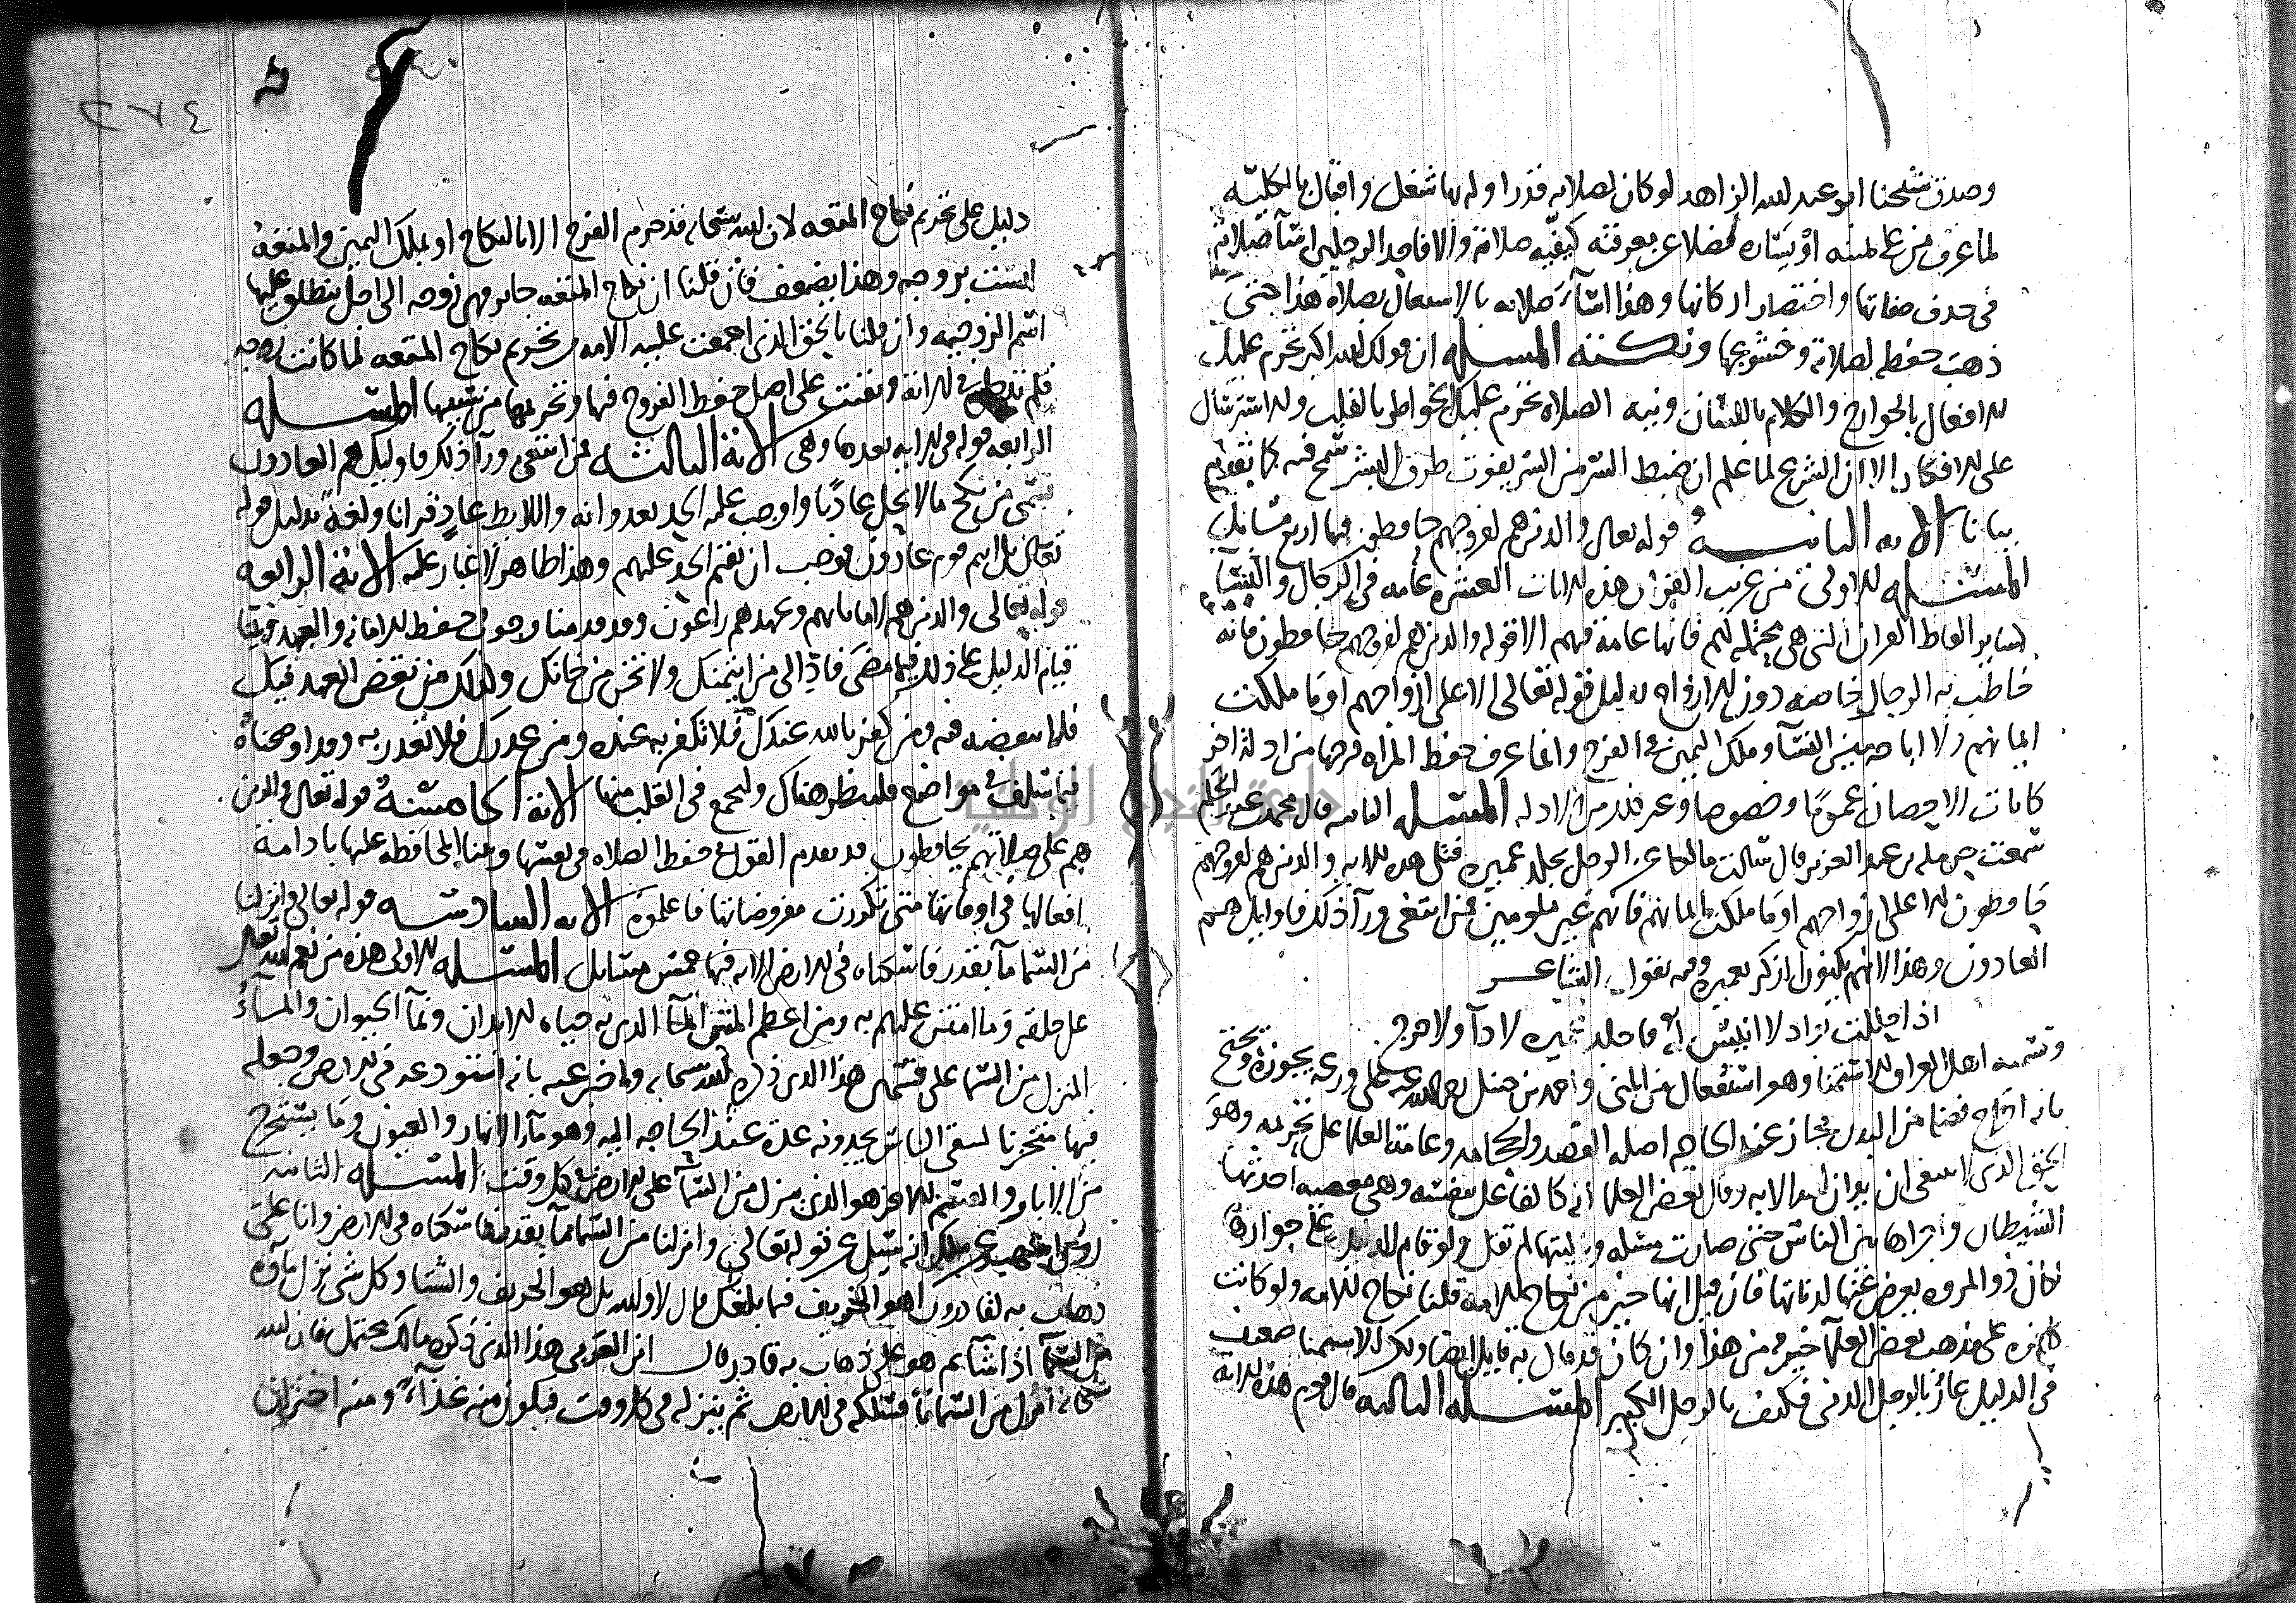 وصدق شيخنا ابو عبد الله الزاهد لو كان لصلاته قدرا وله بها شغل واقبال بالكلية
لما عرف من على يمينه او يساره فضلا عن معرفته كيفيه صلاته والا فاحد الرجلين اسا صلاته
في حذف صفاتها واختصار اركانها وهذا اسآ في صلاته بالاشتغال بصلاة هذا حتى
ذهب حفظه لصلاته وخشوعها ونكتته المسله ان قولك الله اكبر تحرم عليك
الافعال بالجوارح والكلام باللسان ونيه الصلاه تحرم عليك الخواطر بالقلب والاسترسال
على الافكار الا ان الشرع لما علم ان ضبط السر من السر يفوت طوق البشر سمح فيه كما تقدم
بيانا الايه الثانيه قوله تعالى والذين هم لفروجهم حافظون فيها اربع مسايل
المسئله الاولى من غريب القران هذه الايات العشره عامه في الرجال والنسا
كساير الفاظ القران التي هي محتمله لهم فانها عامة فيهم الا قوله والذين هم لفروجهم حافظون فانه
خاطب به الرجال خاصه دون الازواج بدليل قوله تعالى الا على ازواجهم او ما ملكت
ايمانهم ولا اباحه بين النسآ وملك اليمين في الفرج وانما عرف حفظ المراه فرجها من ادلة اخر
كايات الاحصان عموما وخصوصا وغير ذلك من الادله المسله الثانيه قال محمد بن عبد الحكم
سمعت حرمله بن عبد العزيز قال سالت مالكا عن الرجل يجلد عميره فتلى هذه الايه والذين هم لفروجهم
حافظون الا على ازواجهم او ما ملكت ايمانهم فانهم غير ملومين فمن ابتغى ورآ ذلك فاوليك هم
العادون وهذا لانهم يكنون الذكر بعميره وفيه يقول الشاعر
اذا حللت بواد لا انيس به فاجلد عميره لا دآ ولا حرج
وتسميه اهل العراق الاستمنا وهو استفعال من المني واحمد بن حنبل رحمه الله على ورعه يجوزه ويحتج
بانه اخراج فضله من البدن فجاز عند الحاجه اصله الفصد والحجامه وعامة العلما على تحريمه وهو
الحق الذي لا ينبغي ان يدان الله الا به وقال بعض العلما انه كالفاعل بنفسه وهي معصيه احدثها
الشيطان واجراها بين الناس حتى صارت مسله وليتها لم تقل ولو قام الدليل على جوازها
لكان ذو المروه يعرض عنها لدناتها فان قيل انها خير من نكاح الامه قلنا نكاح الامه ولو كانت
كافره على مذهب بعض العلمآ خير من هذا وان كان قد قال به قايل ايضا ولكن الاستمنا ضعيف
في الدليل عار بالرجل الدني فكيف بالرجل الكبير المسئله الثالثه قال قوم هذه الايه
دليل على تحريم نكاح المتعه لان الله سبحانه قد حرم الفرج الا بالنكاح او بملك اليمين والمتعه
ليست بزوجه وهذا يضعف فان قلنا ان نكاح المتعه جايز فهي زوجه الى اجل ينطلق عليها
اسم الزوجيه وان قلنا بالحق الذي اجمعت عليه الامه من تحريم نكاح المتعه لما كانت زوجه
فلم تدخل في الايه وبقيت على اصل حفظ الفروج فيها وتحريمها من سببها المسئله
الرابعه قوله في الايه بعدها وهي الاية الثالثه فمن ابتغى ورآ ذلك فاوليك هم العادون
فسمى من نكح ما لا يحل عاديا واوجب عليه الحد بعدوانه واللايط عاد قرانا ولغة بدليل قوله
تعالى بل انتم قوم عادون فوجب ان يقام الحد عليهم وهذا ظاهر لا غبار عليه الاية الرابعه
قوله تعالى والذين هم لاماناتهم وعهدهم راعون وقد قدمنا وجوب حفظ الامانه والعهد وبينا
قيام الدليل على ذلك فيما مضى فادّ الى من ايتمنك ولا تخن من خانك ولذلك من نقض العهد فيك
فلا تنقضه فيه ومن كفر بالله عندك فلا تكفر به عنده ومن غدر بك فلا تغدر به وقد اوضحناه
فيما سلف في مواضع فلينظر هنالك وليجمع في القلب منها الاية الخامسة قوله تعالى والذين
هم على صلاتهم يحافظون قد تقدم القول في حفظ الصلاه في نفسها وهنا المحافظه عليها بادامة
افعالها في اوقاتها متى تكررت مفروضاتها فاعلموه الايه السادسه قوله تعالى وانزلنا
من السما مآ بقدر فاسكناه في الارض الايه فيها خمس مسايل المسئله الاولى هذه من نعم الله تعالى
على خلقه وما امتن عليهم به ومن اعظم المنن المآ الذي به حياه الابدان ونمآ الحيوان والمآ
المنزل من السما على قسمين هذا الذي ذكره الله سبحانه واخبر عنه بانه استودعه في الارض وجعله
فيها مختزنا لسقي الناس يجدونه عدة عند الحاجه اليه وهو مآ الانهار والعيون وما يستخرج
من الابار والقسم الاخر هو الذي ينزل من السمآ على الارض في كل وقت المسئله الثانيه
روى اشهب عن مالك انه سيل عن قوله تعالى وانزلنا من السما مآ بقدر فاسكناه في الارض وانا على
ذهاب به لقادرون اهو الخريف فيما بلغك قال لا والله بل هو الخريف والشتا وكل شي ينزل مآوه
من السمآ اذا شآ ثم هو على ذهاب به قادر قال ابن العربي هذا الذي ذكره مالك محتمل فان الله
سبحانه انزل من السما مآ فسلكه في الارض ثم ينزله في كل وقت فيكون منه غذآء ومنه اختزان